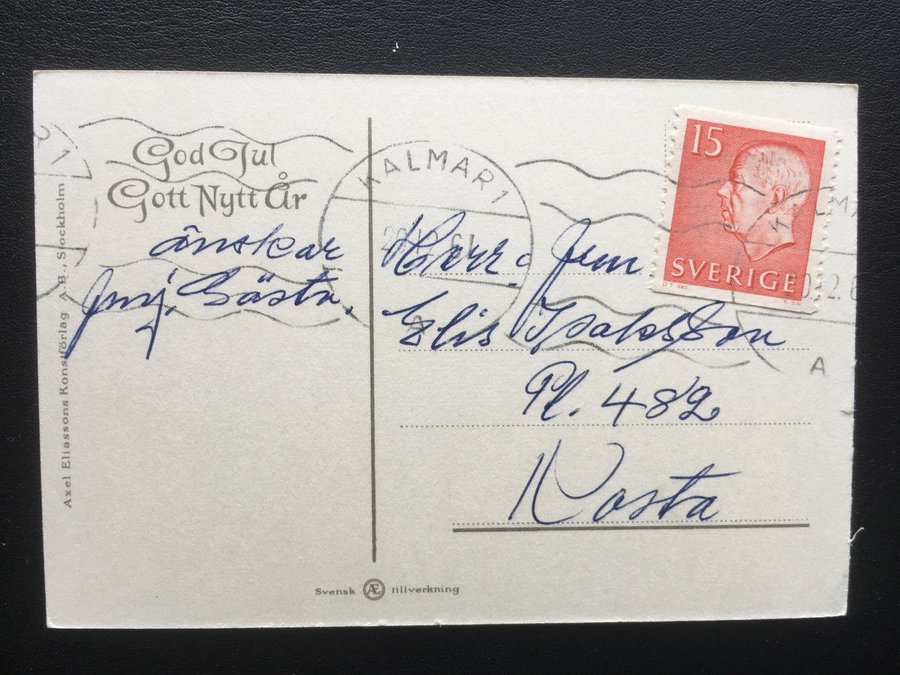 God Jul
Gott Nytt År
önskar
Gösta.
KALMAR 1
A
15
SVERIGE
A
Herr.
Elis Isaksson
Pl. 482
Kosta
Axel Eliassons Konstförlag A.B., Stockholm
Svensk Æ tillverkning